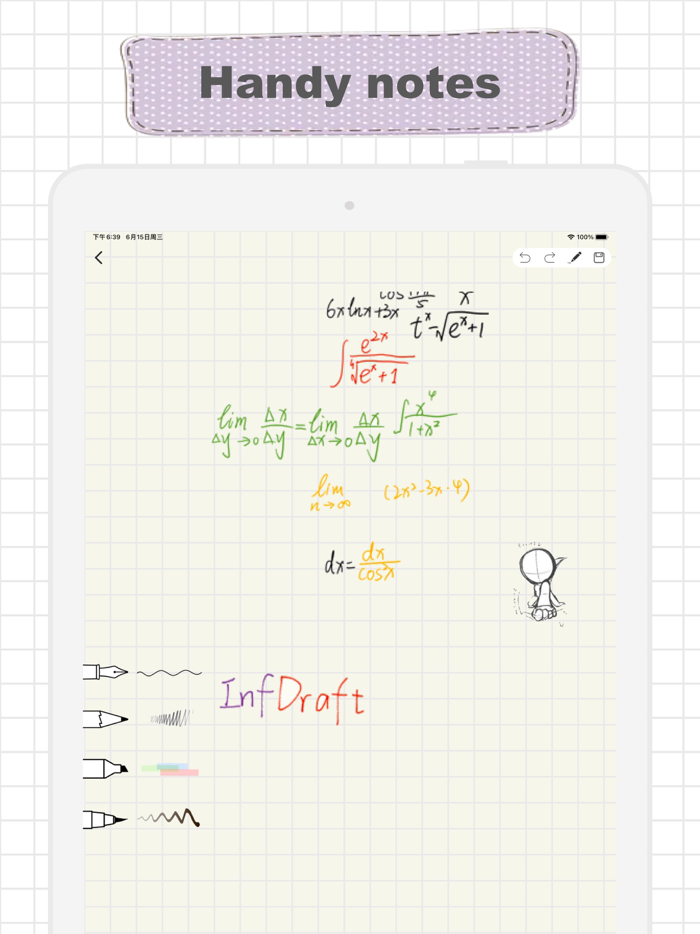 Handy notes
下午6:39 6月15日周三 100%
cos 5 x
6xlnx+3x t^x-√(e^x+1)
∫ e^(2x)/∜(e^x+1)
lim Δy→0 Δx/Δy = lim Δx→0 Δx/Δy ∫ x^4/(1+x^2)
lim n→∞ (2x^2-3x·4)
dx= dx/cos^2x
InfDraft